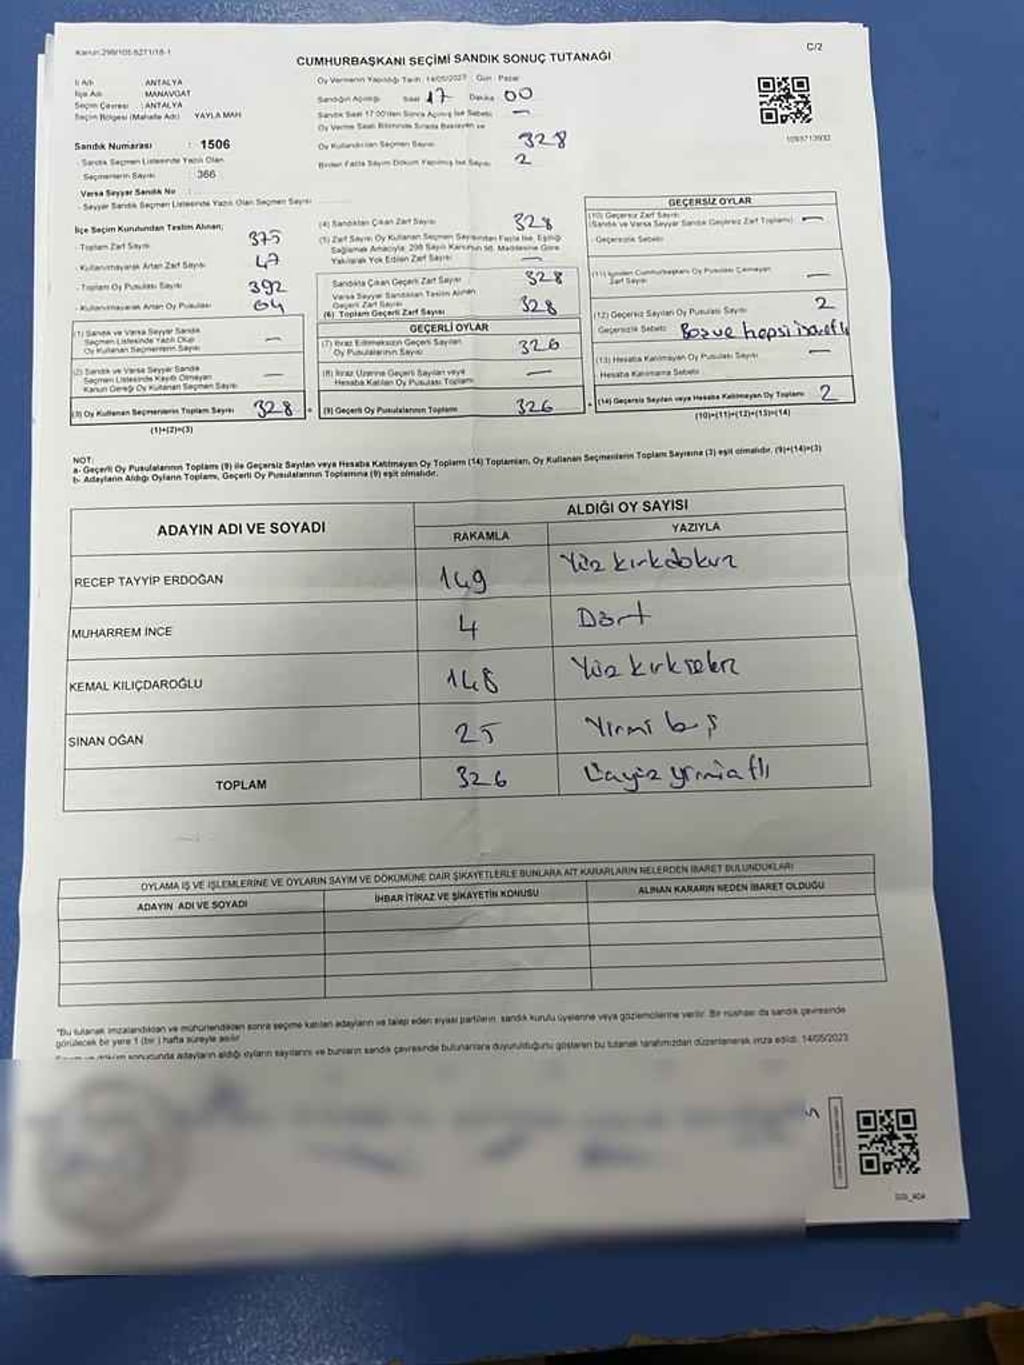 C/2
CUMHURBAŞKANI SEÇİMİ SANDIK SONUÇ TUTANAĞI
İl Adı : ANTALYA
İlçe Adı : MANAVGAT
Seçim Çevresi : ANTALYA
Seçim Bölgesi (Mahalle Adı) YAYLA MAH
Sandık Numarası : 1506
- Sandık Seçmen Listesinde Yazılı Olan
Seçmenlerin Sayısı : 366
Varsa Seyyar Sandık No :
- Seyyar Sandık Seçmen Listesinde Yazılı Olan Seçmen Sayısı
Oy Vermenin Yapıldığı Tarih : 14/05/2023 Gün : Pazar
Sandığın Açıldığı Saat 17 Dakika 00
Sandık Saat 17:00'den Sonra Açılmış İse Sebebi —
Oy Verme Saati Bitiminde Sırada Bekleyen ve
Oy Kullandırılan Seçmen Sayısı 328
Birden Fazla Sayım Döküm Yapılmış İse Sayısı 2
İlçe Seçim Kurulundan Teslim Alınan;
- Toplam Zarf Sayısı 375
- Kullanılmayarak Artan Zarf Sayısı 47
- Toplam Oy Pusulası Sayısı 392
- Kullanılmayarak Artan Oy Pusulası 64
(1) Sandık ve Varsa Seyyar Sandık
Seçmen Listesinde Yazılı Olup
Oy Kullanan Seçmenlerin Sayısı —
(2) Sandık ve Varsa Seyyar Sandık
Seçmen Listesinde Kayıtlı Olmayan
Kanun Gereği Oy Kullanan Seçmen Sayısı —
(3) Oy Kullanan Seçmenlerin Toplam Sayısı 328
(1)+(2)=(3)
(4) Sandıktan Çıkan Zarf Sayısı 328
(5) Zarf Sayısı Oy Kullanan Seçmen Sayısından Fazla İse, Eşitliği
Sağlamak Amacıyla, 298 Sayılı Kanunun 98. Maddesine Göre
Yakılarak Yok Edilen Zarf Sayısı —
Sandıkta Çıkan Geçerli Zarf Sayısı 328
Varsa Seyyar Sandıktan Teslim Alınan
Geçerli Zarf Sayısı
(6) Toplam Geçerli Zarf Sayısı 328
GEÇERLİ OYLAR
(7) İtiraz Edilmeksizin Geçerli Sayılan
Oy Pusulalarının Sayısı 326
(8) İtiraz Üzerine Geçerli Sayılan veya
Hesaba Katılan Oy Pusulası Toplamı —
(9) Geçerli Oy Pusulalarının Toplamı 326
GEÇERSİZ OYLAR
(10) Geçersiz Zarf Sayısı
(Sandık ve Varsa Seyyar Sandık Geçersiz Zarf Toplamı) —
Geçersizlik Sebebi
(11) İçinden Cumhurbaşkanı Oy Pusulası Çıkmayan
Zarf Sayısı —
(12) Geçersiz Sayılan Oy Pusulası Sayısı 2
Geçersizlik Sebebi
(13) Hesaba Katılmayan Oy Pusulası Sayısı —
Hesaba Katılmama Sebebi
(14) Geçersiz Sayılan veya Hesaba Katılmayan Oy Toplamı 2
(10)+(11)+(12)+(13)=(14)
NOT:
a- Geçerli Oy Pusulalarının Toplamı (9) ile Geçersiz Sayılan veya Hesaba Katılmayan Oy Toplamı (14) Toplamları, Oy Kullanan Seçmenlerin Toplam Sayısına (3) eşit olmalıdır. (9)+(14)=(3)
b- Adayların Aldığı Oyların Toplamı, Geçerli Oy Pusulalarının Toplamına (9) eşit olmalıdır.
ADAYIN ADI VE SOYADI
ALDIĞI OY SAYISI
RAKAMLA YAZIYLA
RECEP TAYYİP ERDOĞAN 149 Yüz kırk dokuz
MUHARREM İNCE 4 Dört
KEMAL KILIÇDAROĞLU 148 Yüz kırk sekiz
SİNAN OĞAN 25 Yirmi beş
TOPLAM 326 Üçyüz yirmi altı
OYLAMA İŞ VE İŞLEMLERİNE VE OYLARIN SAYIM VE DÖKÜMÜNE DAİR ŞİKAYETLERLE BUNLARA AİT KARARLARIN NELERDEN İBARET BULUNDUKLARI
ADAYIN ADI VE SOYADI İHBAR İTİRAZ VE ŞİKAYETİN KONUSU ALINAN KARARIN NEDEN İBARET OLDUĞU
*Bu tutanak imzalandıktan ve mühürlendikten sonra seçime katılan adayların ve talep eden siyasi partilerin, sandık kurulu üyelerine veya gözlemcilerine verilir. Bir nüshası da sandık çevresinde
görülecek bir yere 1 (bir) hafta süreyle asılır.
sonucunda adayların aldığı oyların sayılarını ve bunların sandık çevresinde bulunanlara duyurulduğunu gösteren bu tutanak tarafımızdan düzenlenerek imza edildi. 14/05/2023